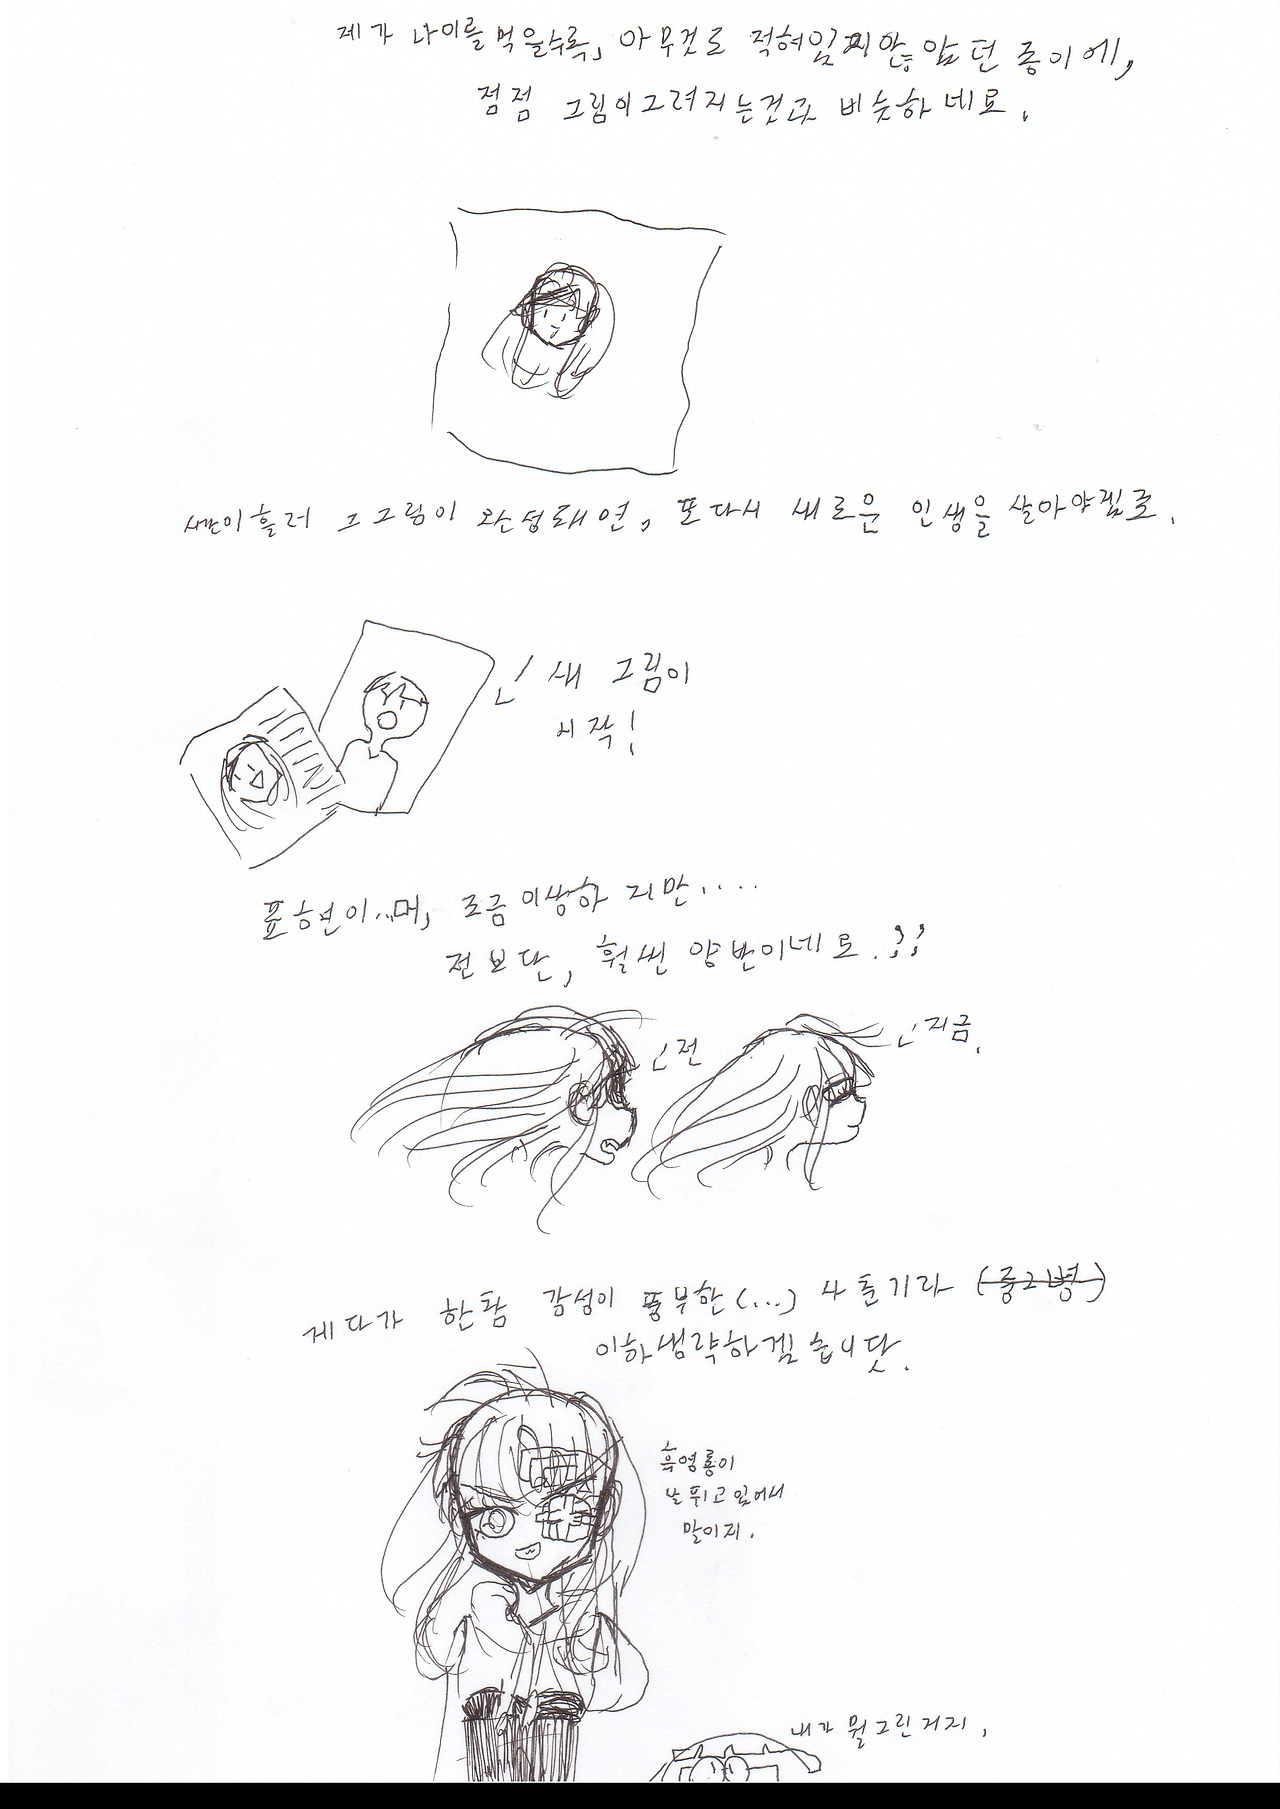 제가 나이를 먹을수록, 아무것도 적혀있지않았던 종이에,
점점 그림이그려지는것과 비슷하네요.
시간이흘러 그그림이 완성돼면, 또다시 새로운 인생을 살아야겠죠.
새 그림이
시작!
표현이..머, 조금이상하지만....
전보단, 훨씬 양반이네요.??
전
지금.
게다가 한참 감성이 풍부한(...) 사춘기라 (중2병)
이하생략하겠습니닷.
흑염룡이
날뛰고있어서
말이지.
내가 뭘그린거지,